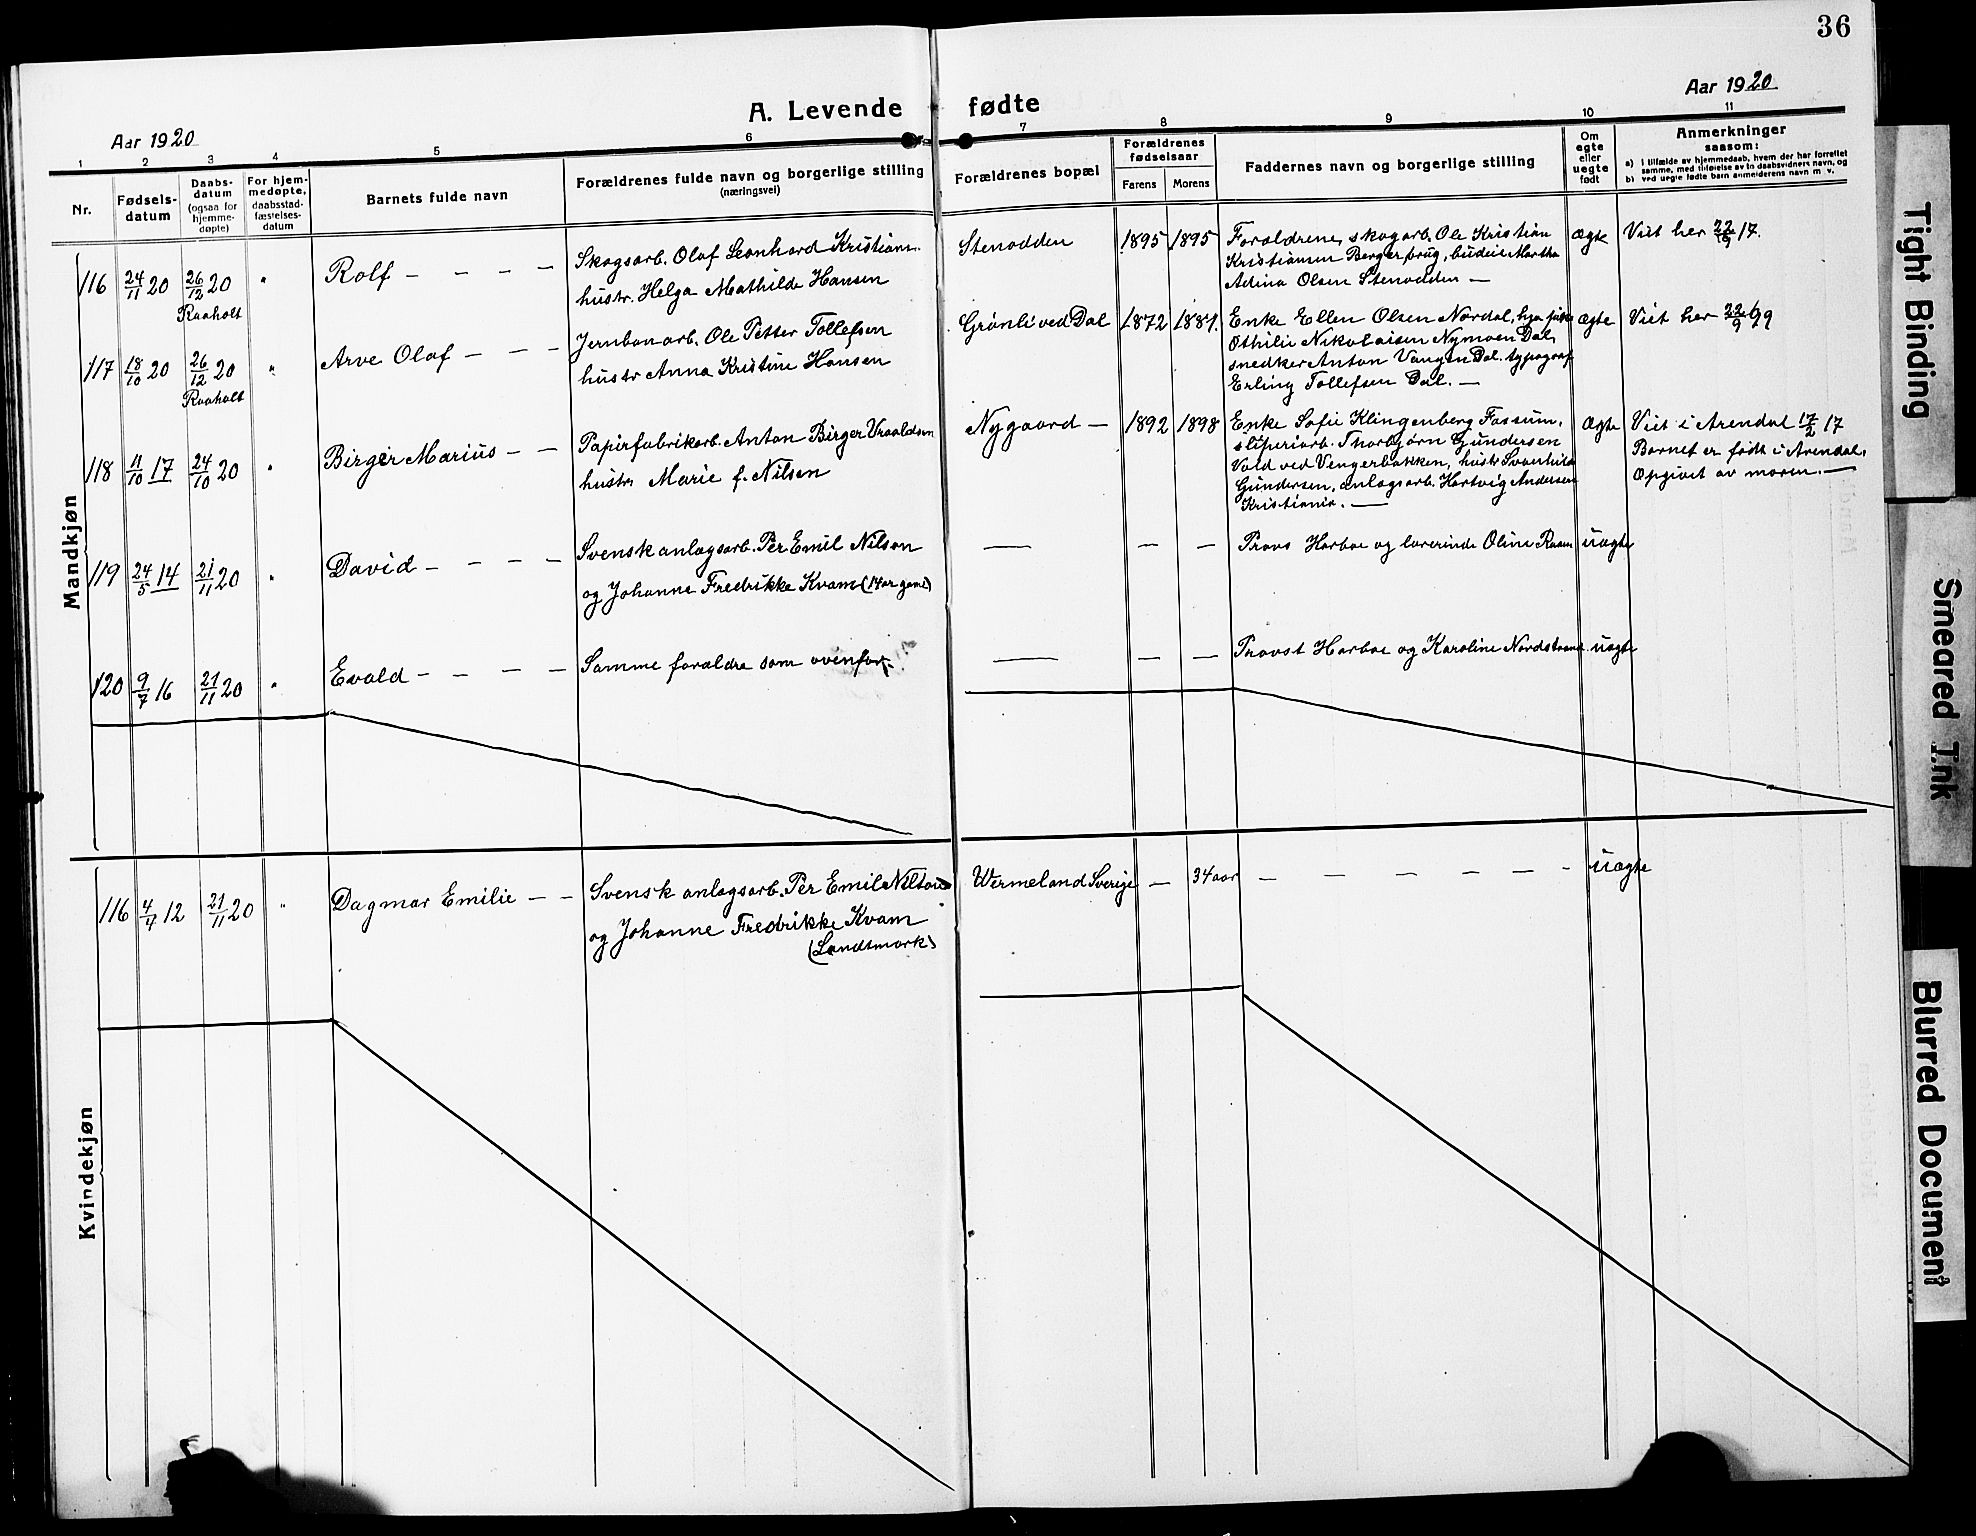 36
A. Levende fødte
Aar 1920
Aar 1920
1 2 3 4 5 6 7 8 9 10 11
Nr.
Fødsels-
datum
Daabs-
datum
(ogsaa for
hjemme-
døpte)
For hjem-
medøpte,
daabsstad-
fæstelses-
datum
Barnets fulde navn
Forældrenes fulde navn og borgerlige stilling
(næringsvei)
Forældrenes bopæl
Forældrenes
fødselsaar
Farens Morens
Faddernes navn og borgerlige stilling
Om
egte
eller
uegte
født
Anmerkninger
saasom:
a) i tilfælde av hjemmedaab, hvem der har forrettet
samme, med tilføielse av to daabsvidners navn, og
b) ved uegte fødte barn anmelderens navn m. v.
Mandkjøn
116 24/11 20 26/12 20 " Rolf — — — —
Raaholt
Skogsarb. Olaf Leonhard Kristians.
hustr. Helga Mathilde Hansen
Stenodden 1895 1895
Forældrene, skogarb. Ole Kristian
Kristiansen Berger brug, budeie Martha
Adina Olsen Stenodden —
Ægte Viet her 22/9 17.
117 18/10 20 26/12 20 " Arve Olaf — — —
Raaholt
Jernbanarb. Ole Petter Tollefsen
hustr Anna Kristine Hansen
Grønli ved Dal 1872 1881.
Enke Ellen Olsen Nordal,
Othilie Nikolaisen Nymoen Dal,
snedker Anton Vangen Dal. typograf
Erling Tollefsen Dal. —
ægte Viet her 22/9
118 11/10 17 24/10 20 " Birger Marius — —
Papirfabrikarb. Anton Birger Vraaldsen
hustr. Marie f. Nilsen
Nygaard — 1892 1898
Enke Sofie Klingenberg Fossum,
sliperiarb. Thorbjørn Gundersen
Vold ved Vengerbakken, hustr Svanhild
Gundersen, anlægsarb. Hartvig Andersen
Kristiania. —
Ægte Viet i Arendal 17/2 17
Barnet er født i Arendal.
Opgivet av moren. —
119 24/5 14 21/11 20 " David — — — —
Svensk anlægsarb. Per Emil Nilson
og Johanne Fredrikke Kvam (14 aar gaml)
— — —
Provs Harboe og lærerinde Oline Raam uægte
120 9/7 16 21/11 20 " Evald — — — —
Samme forældre som ovenfor.
— — —
Provst Harboe og Karoline Nordstrand uægte
Kvindekjøn
116 4/4 12 21/11 20 " Dagmar Emilie — —
Svensk anlægsarb. Per Emil Nilson
og Johanne Fredrikke Kvam
(Landsmark)
Wermeland Sverige — 34 aar — — — — — — uægte
Tight Binding
Smeared Ink
Blurred Document